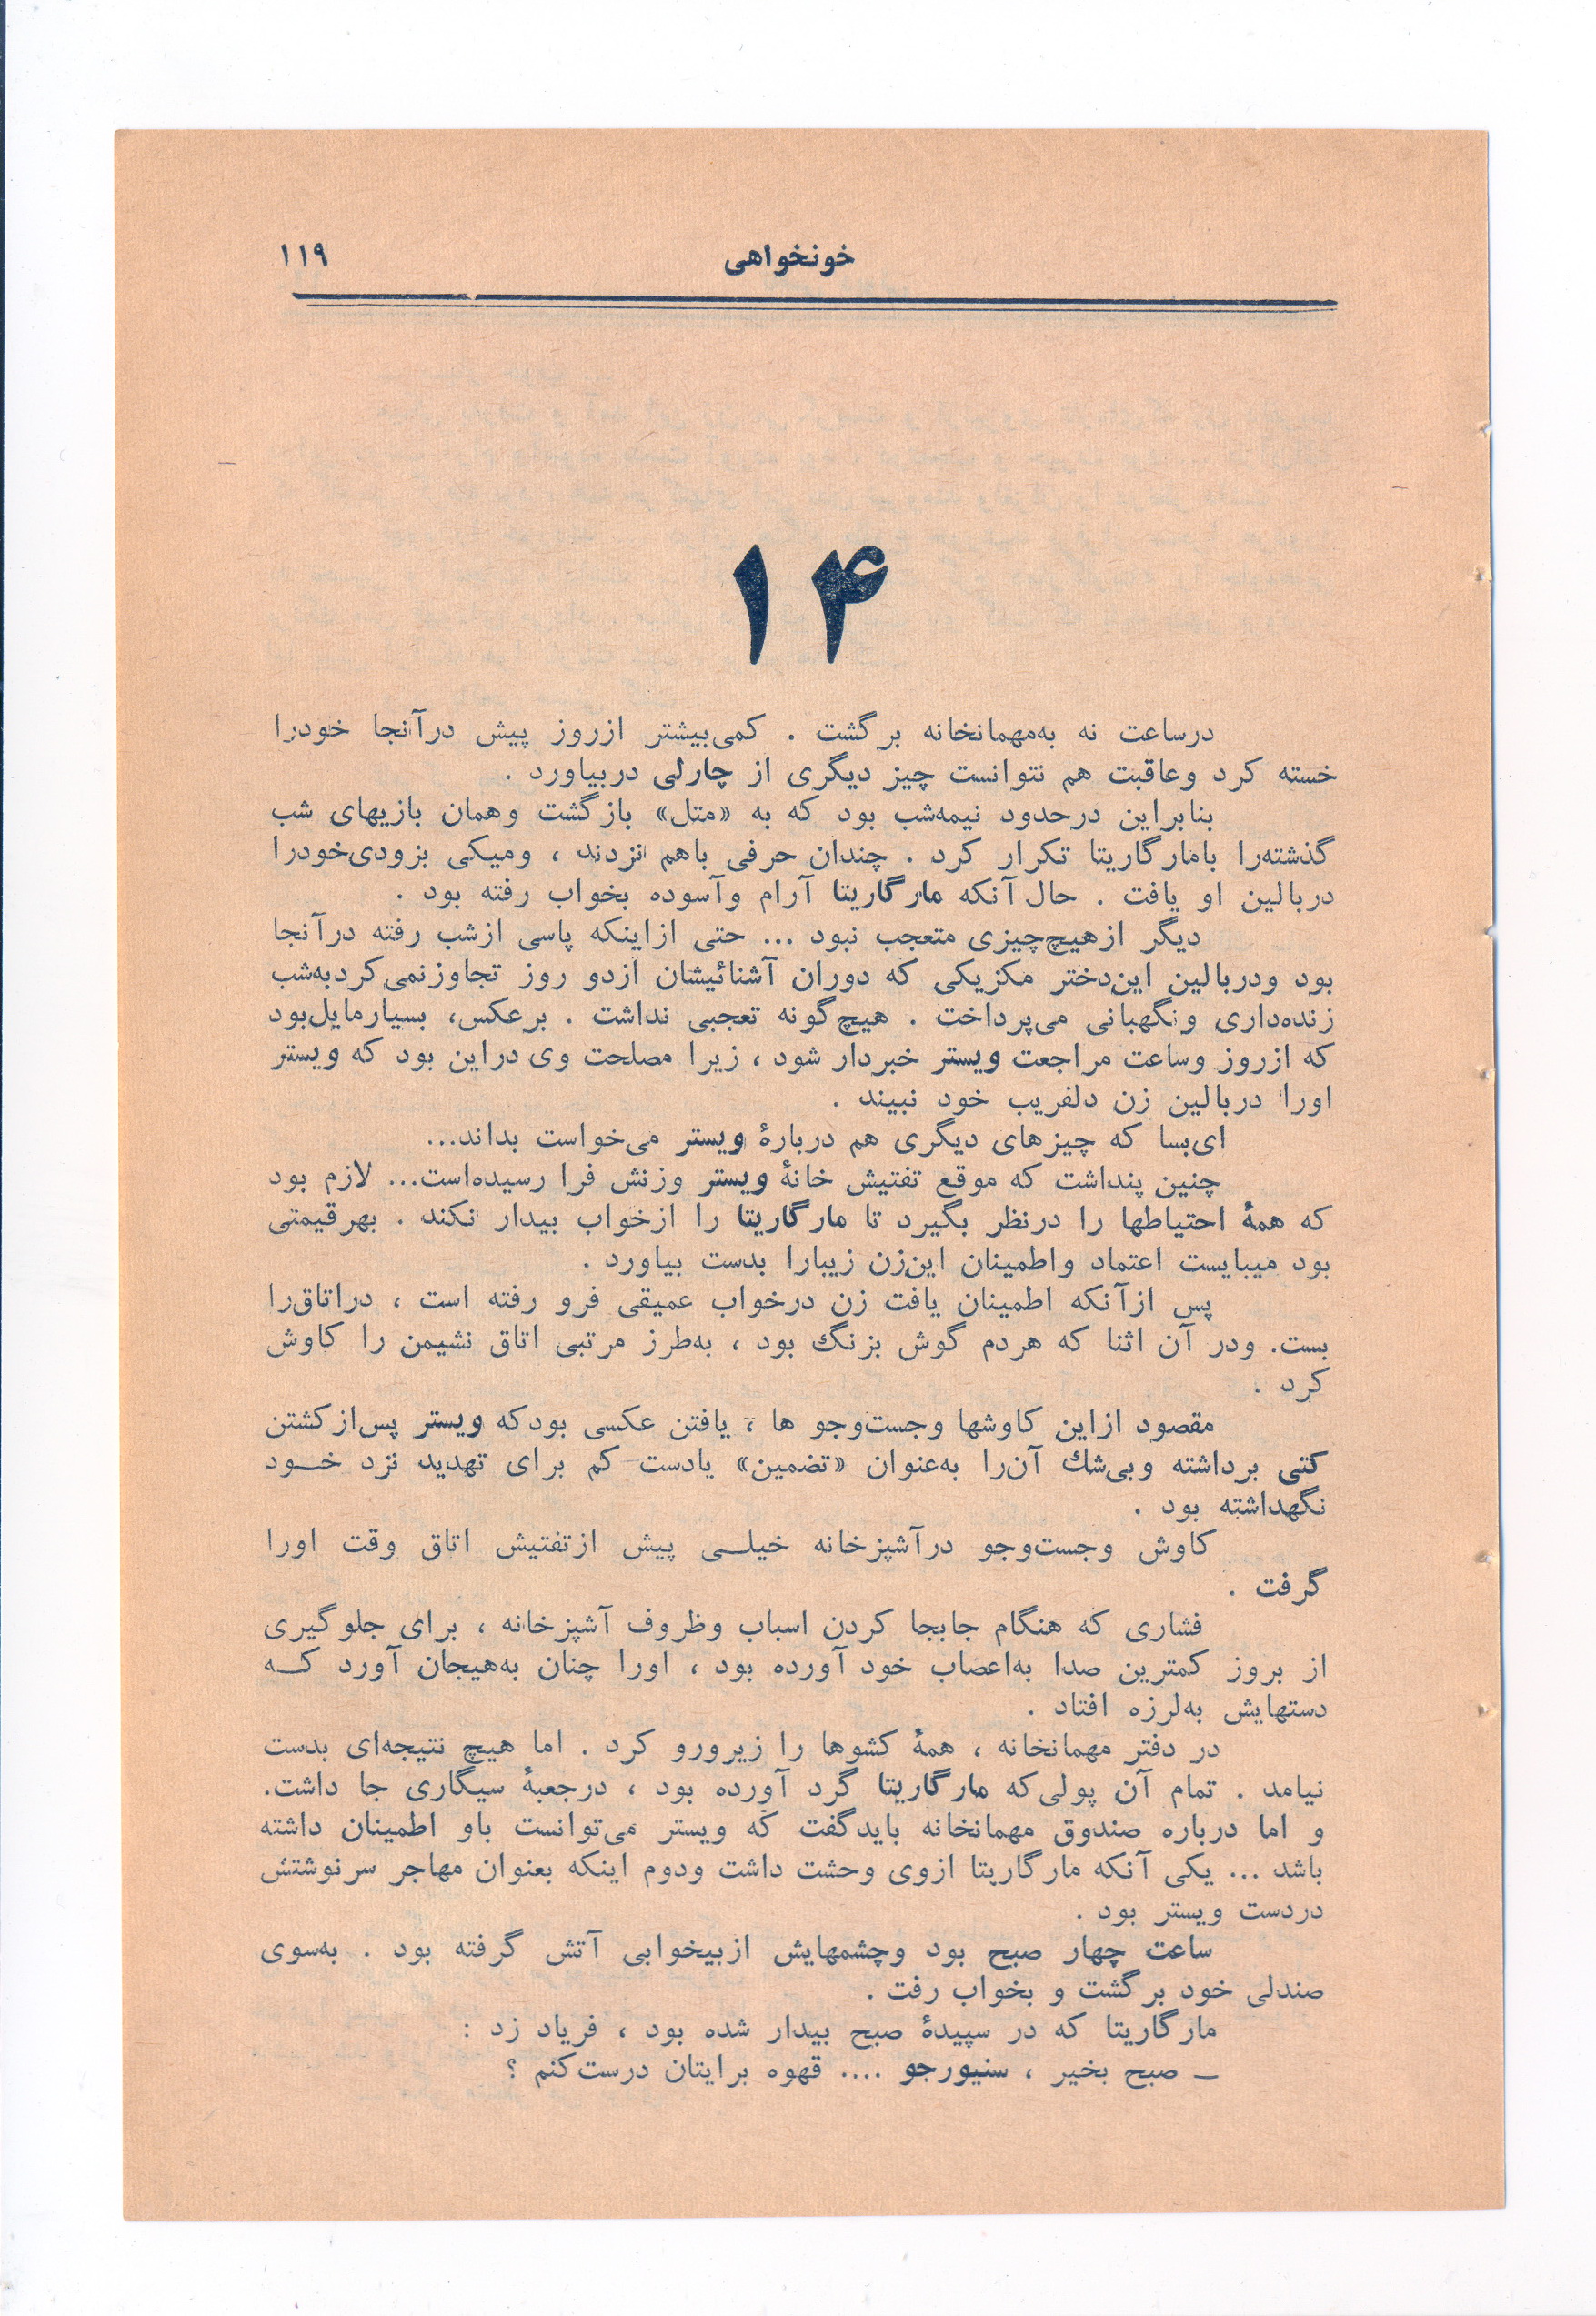 خونخواهی ۱۱۹
۱۴
درساعت نه به‌مهمانخانه برگشت . کمی‌بیشتر ازروز پیش درآنجا خودرا
خسته کرد وعاقبت هم نتوانست چیز دیگری از چارلی دربیاورد .
بنابراین درحدود نیمه‌شب بود که به «متل» بازگشت وهمان بازیهای شب
گذشته‌را بامارگاریتا تکرار کرد . چندان حرفی باهم نزدند ، ومیکی بزودی‌خودرا
دربالین او یافت . حال‌آنکه مارگاریتا آرام وآسوده بخواب رفته بود .
دیگر ازهیچ‌چیزی متعجب نبود ... حتی ازاینکه پاسی ازشب رفته درآنجا
بود ودربالین این‌دختر مکزیکی که دوران آشنائیشان ازدو روز تجاوزنمی‌کردبه‌شب
زنده‌داری ونگهبانی می‌پرداخت . هیچ‌گونه تعجبی نداشت . برعکس، بسیارمایل‌بود
که ازروز وساعت مراجعت ویستر خبردار شود ، زیرا مصلحت وی دراین بود که ویستر
اورا دربالین زن دلفریب خود نبیند .
ای‌بسا که چیزهای دیگری هم دربارهٔ ویستر می‌خواست بداند...
چنین پنداشت که موقع تفتیش خانهٔ ویستر وزنش فرا رسیده‌است... لازم بود
که همهٔ احتیاطها را درنظر بگیرد تا مارگاریتا را ازخواب بیدار نکند . بهرقیمتی
بود میبایست اعتماد واطمینان این‌زن زیبارا بدست بیاورد .
پس ازآنکه اطمینان یافت زن درخواب عمیقی فرو رفته است ، دراتاق‌را
بست. ودر آن اثنا که هردم گوش بزنگ بود ، به‌طرز مرتبی اتاق نشیمن را کاوش
کرد .
مقصود ازاین کاوشها وجست‌وجو ها ، یافتن عکسی بودکه ویستر پس‌ازکشتن
کتی برداشته وبی‌شك آن‌را به‌عنوان «تضمین» یادست کم برای تهدید نزد خود
نگهداشته بود .
کاوش وجست‌وجو درآشپزخانه خیلی پیش ازتفتیش اتاق وقت اورا
گرفت .
فشاری که هنگام جابجا کردن اسباب وظروف آشپزخانه ، برای جلوگیری
از بروز کمترین صدا به‌اعصاب خود آورده بود ، اورا چنان به‌هیجان آورد که
دستهایش به‌لرزه افتاد .
در دفتر مهمانخانه ، همهٔ کشوها را زیرورو کرد . اما هیچ نتیجه‌ای بدست
نیامد . تمام آن پولی‌که مارگاریتا گرد آورده بود ، درجعبهٔ سیگاری جا داشت.
و اما درباره صندوق مهمانخانه بایدگفت که ویستر می‌توانست باو اطمینان داشته
باشد ... یکی آنکه مارگاریتا ازوی وحشت داشت ودوم اینکه بعنوان مهاجر سرنوشتش
دردست ویستر بود .
ساعت چهار صبح بود وچشمهایش ازبیخوابی آتش گرفته بود . به‌سوی
صندلی خود برگشت و بخواب رفت .
مارگاریتا که در سپیدهٔ صبح بیدار شده بود ، فریاد زد :
ـ صبح بخیر ، سنیورجو .... قهوه برایتان درست‌کنم ؟